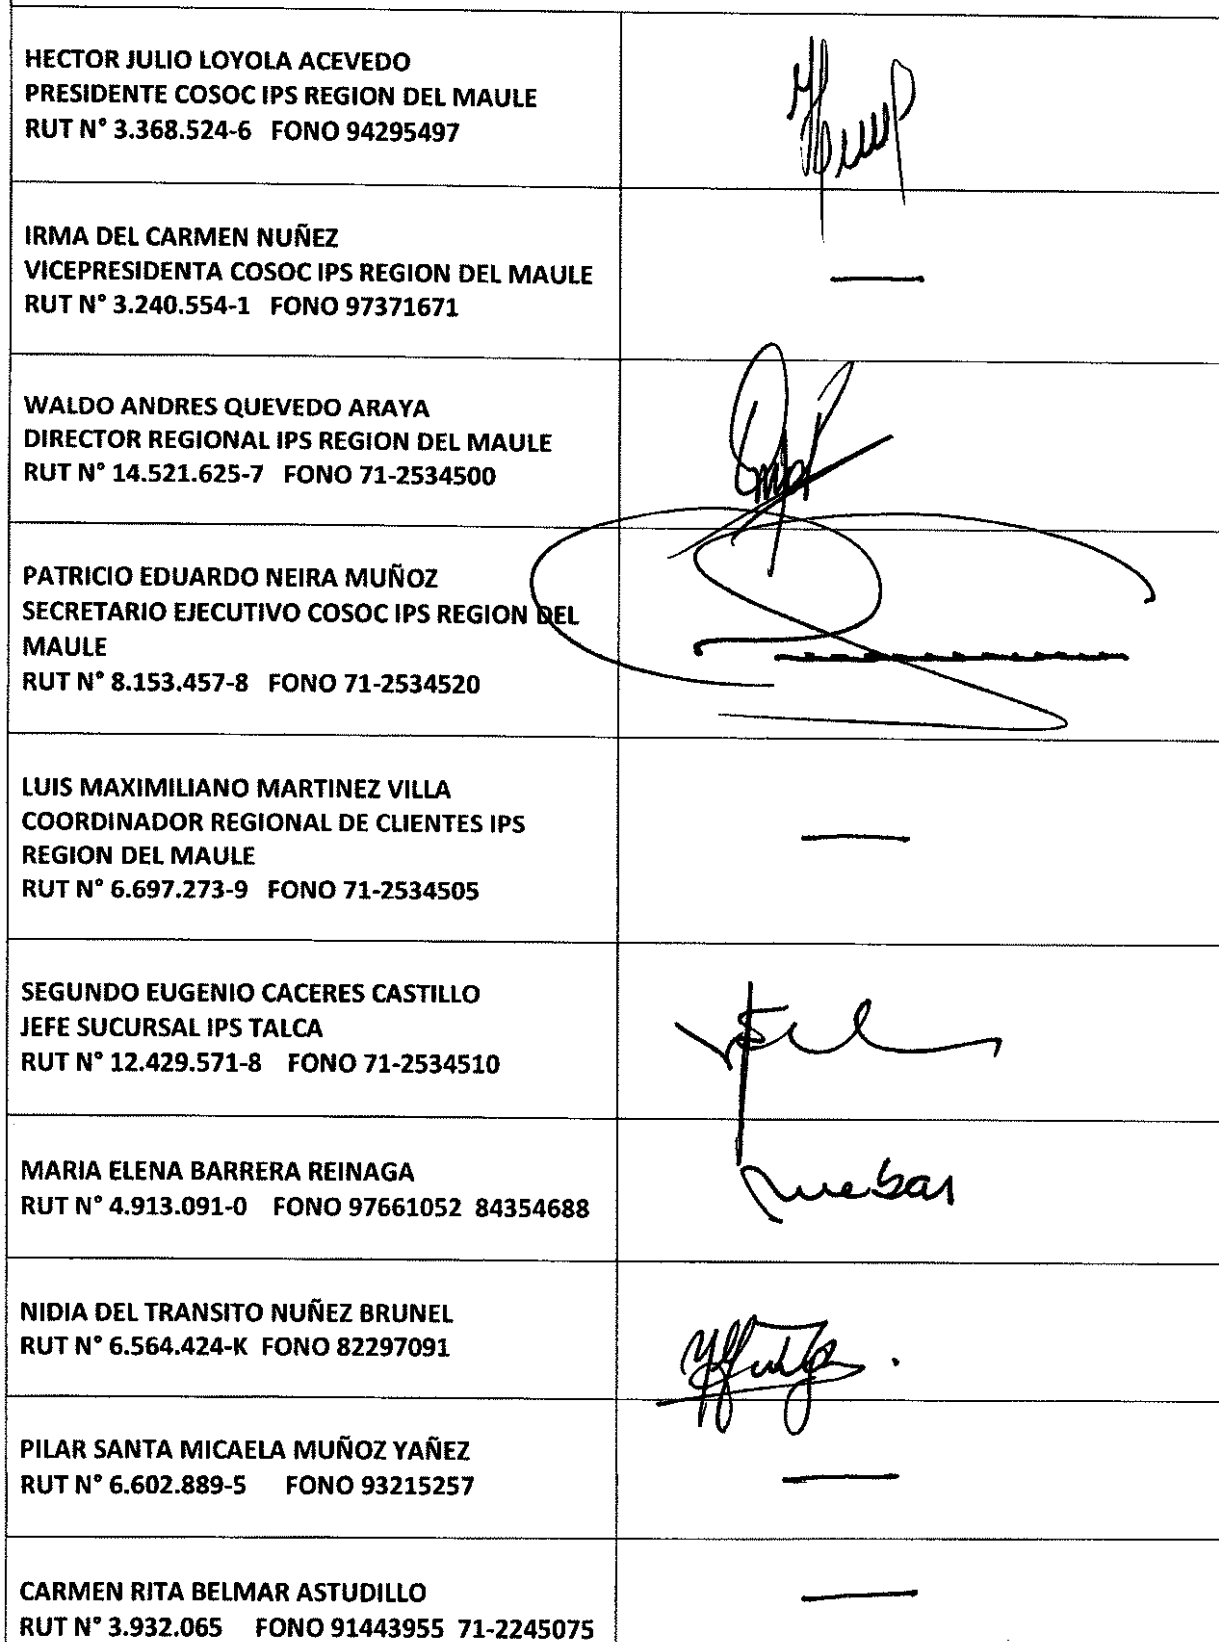 HECTOR JULIO LOYOLA ACEVEDO
PRESIDENTE COSOC IPS REGION DEL MAULE
RUT N° 3.368.524-6 FONO 94295497
IRMA DEL CARMEN NUÑEZ
VICEPRESIDENTA COSOC IPS REGION DEL MAULE
RUT N° 3.240.554-1 FONO 97371671
WALDO ANDRES QUEVEDO ARAYA
DIRECTOR REGIONAL IPS REGION DEL MAULE
RUT N° 14.521.625-7 FONO 71-2534500
PATRICIO EDUARDO NEIRA MUÑOZ
SECRETARIO EJECUTIVO COSOC IPS REGION DEL
MAULE
RUT N° 8.153.457-8 FONO 71-2534520
LUIS MAXIMILIANO MARTINEZ VILLA
COORDINADOR REGIONAL DE CLIENTES IPS
REGION DEL MAULE
RUT N° 6.697.273-9 FONO 71-2534505
SEGUNDO EUGENIO CACERES CASTILLO
JEFE SUCURSAL IPS TALCA
RUT N° 12.429.571-8 FONO 71-2534510
MARIA ELENA BARRERA REINAGA
RUT N° 4.913.091-0 FONO 97661052 84354688
NIDIA DEL TRANSITO NUÑEZ BRUNEL
RUT N° 6.564.424-K FONO 82297091
PILAR SANTA MICAELA MUÑOZ YAÑEZ
RUT N° 6.602.889-5 FONO 93215257
CARMEN RITA BELMAR ASTUDILLO
RUT N° 3.932.065 FONO 91443955 71-2245075